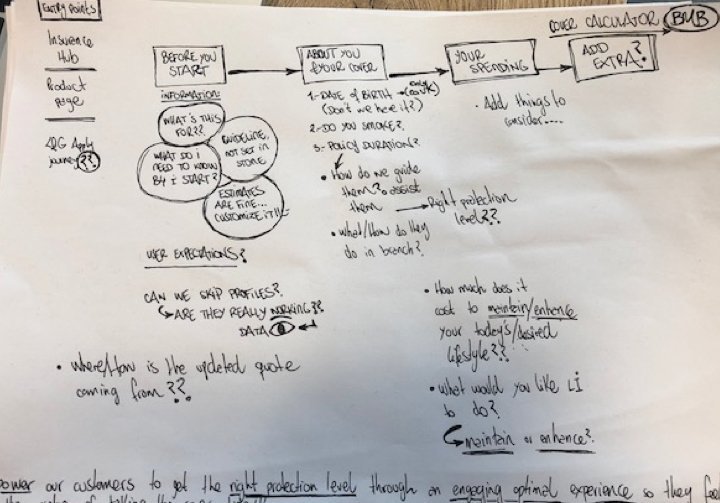 Entry points
Insurence
Hub
Product
page
QG Apply
journey??
COVER CALCULATOR BMB
BEFORE YOU
START
ABOUT YOU
& YOUR COVER
YOUR
SPENDING
ADD
EXTRA?
INFORMATION:
WHAT IS THIS
FOR??
GUIDELINE,
NOT SET IN
STONE
WHAT DO I
NEED TO KNOW
B4 I START?
ESTIMATES
ARE FINE...
CUSTOMIZE IT!!
USER EXPECTATIONS?
CAN WE SKIP PROFILES?
ARE THEY REALLY WORKING??
DATA
• Where/How is the updated quote
coming from??
1-DATE OF BIRTH
(Don't we have it?)
2-DO YOU SMOKE?
3-POLICY DURATION?
• How do we guide
them? assist
them → Right protection
level??
• What/How do they
do in branch?
• Add things to
consider....
• How much does it
cost to maintein/enhance
your today's/desired
lifestyle??
• What would you like LI
to do?
maintein or enhance?
power our customers to get the right protection level through an engaging optimal experience so they feel